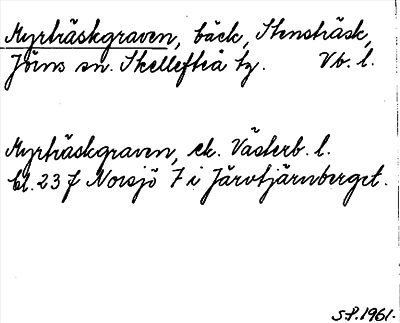 Myrträskgraven, bäck, Stensträsk,
Jörns sn. Skellefteå tg. Vb. l.
Myrträskgraven, ek. Västerb. l.
bl. 23 f Norsjö 7 i Järvtjärnberget.
S.P. 1961.